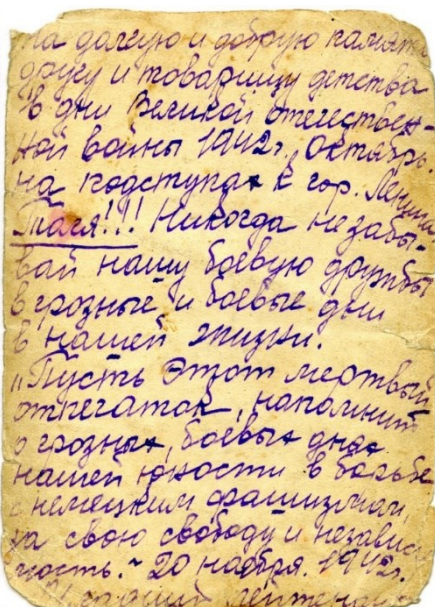 на долгую и добрую память
другу и товарищу детства
в дни Великой отечествен-
ной войны 1942г. Октябрь.
на подступах к гор. Ленин
Тася!!! Никогда не забы-
вай нашу боевую дружбы
в грозные и боевые дни
в нашей жизни.
"Пусть этот мертвый
отпечаток, напомнит
о грозных, боевых днях
нашей юности в борьбе
с немецким фашизмом,
за свою свободу и независи
мость. ~ 20 ноября. 1942г.
Младший лейтенант